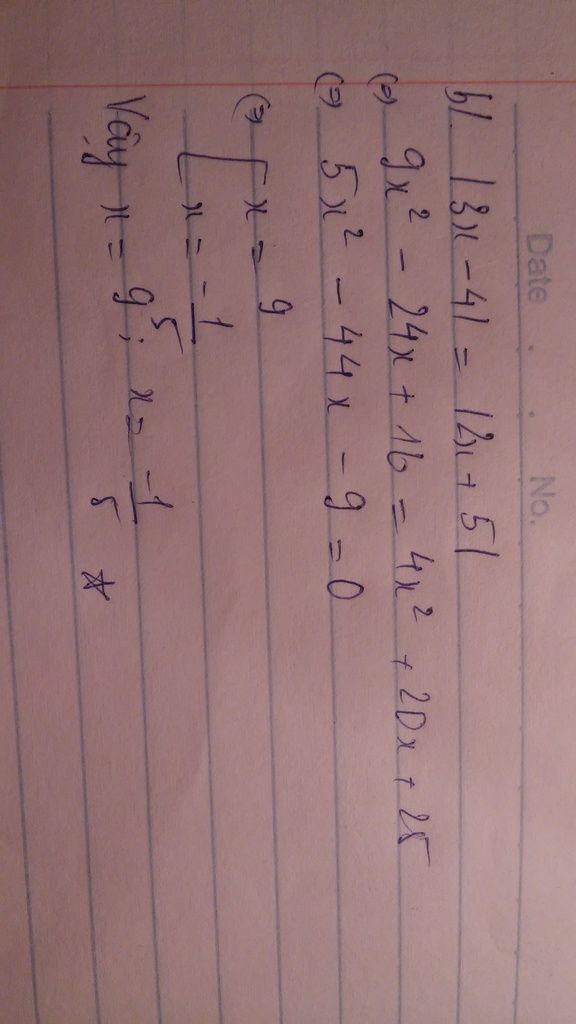 Date . . No.
b/. |3x - 4| = |2x + 5|
(=) 9x² - 24x + 16 = 4x² + 20x + 25
(=) 5x² - 44x - 9 = 0
(=) [ x = 9
[ x = -1/5
Vậy x = 9; x = -1/5 ☆